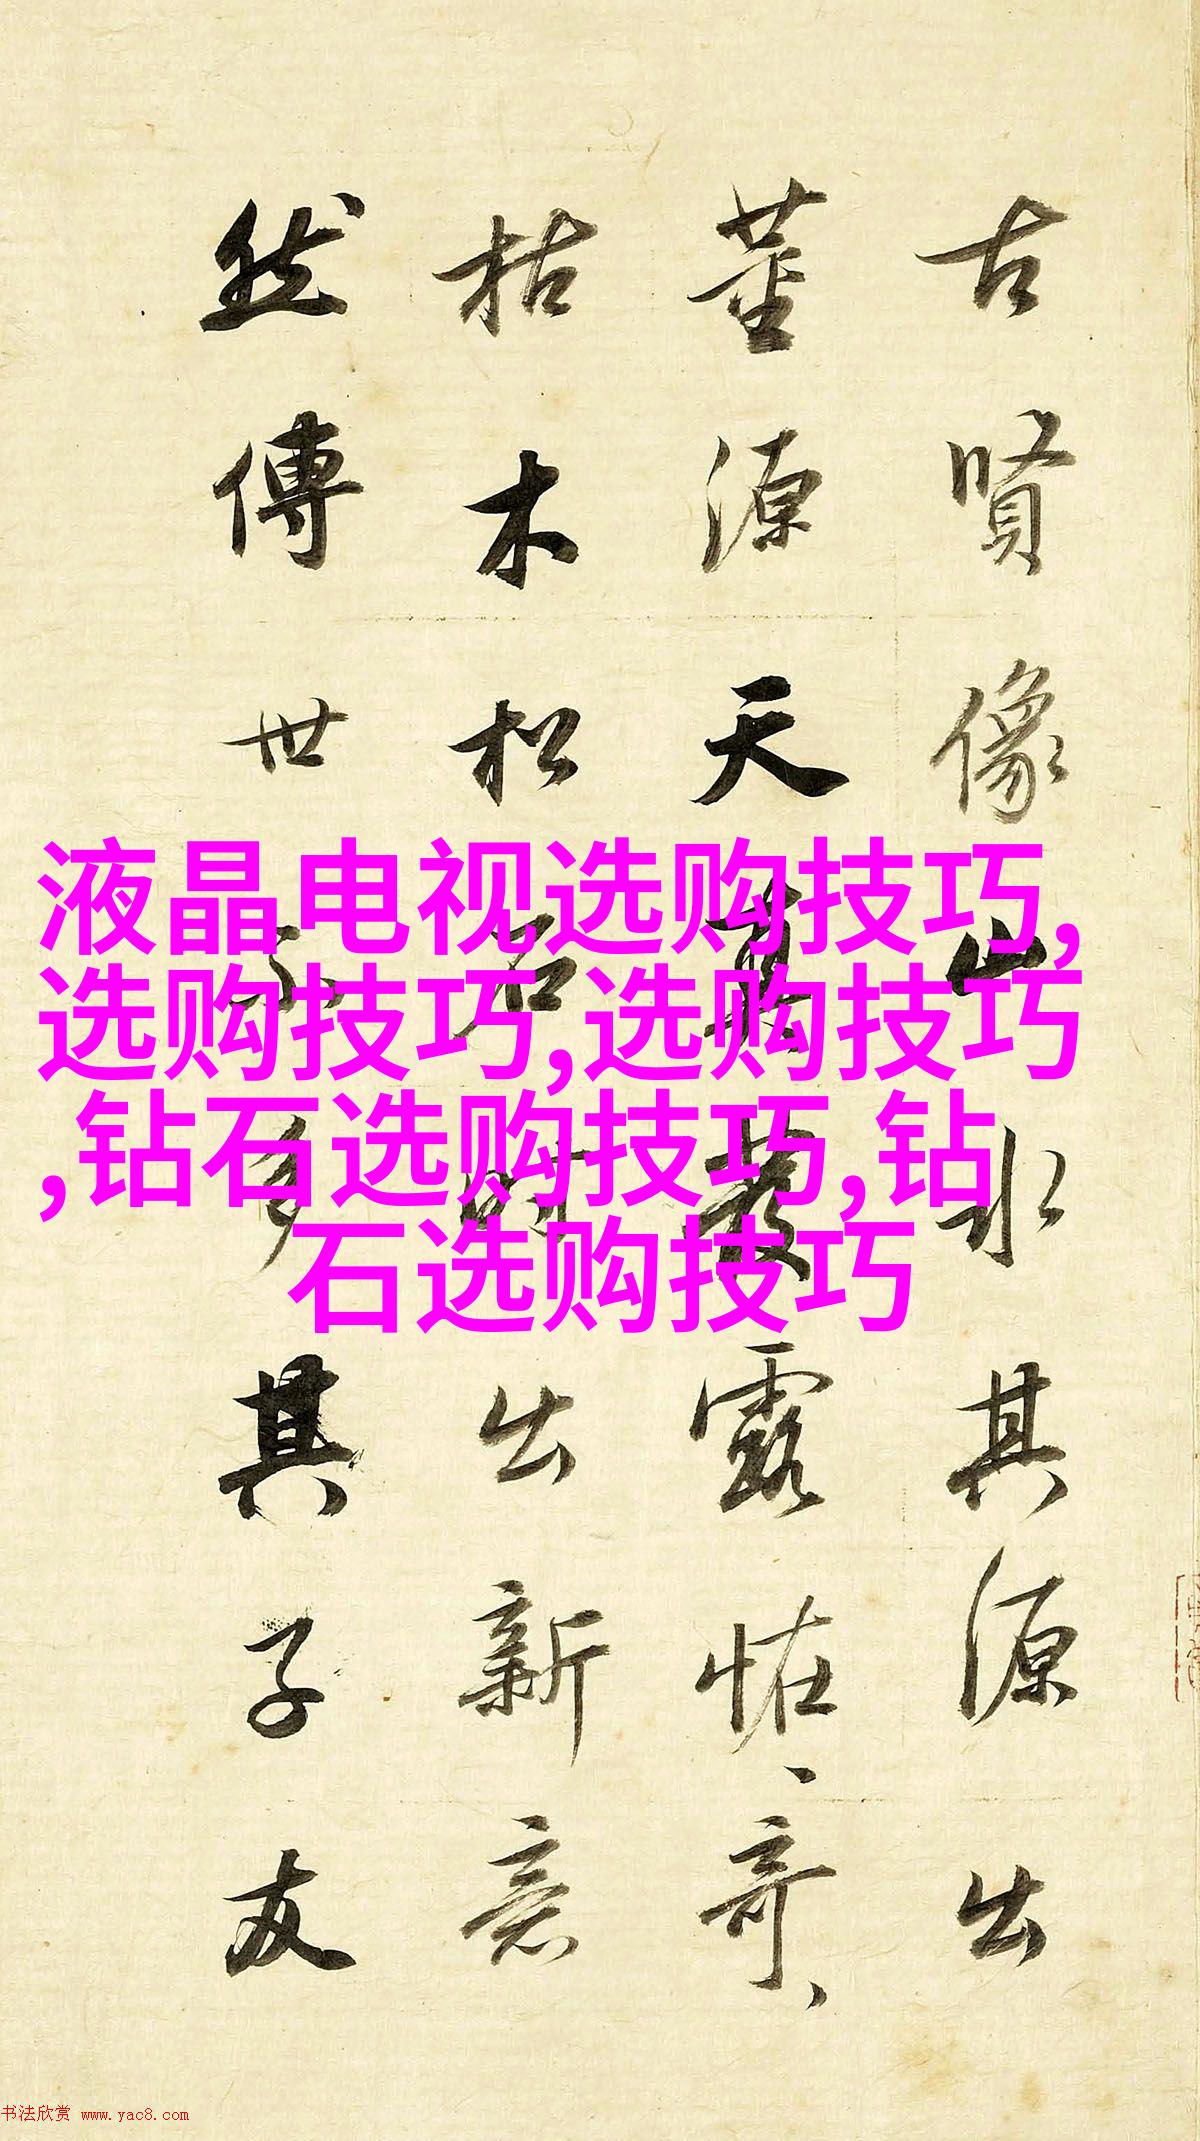 古賢像山水其源出
董源天真叢露恠恠奇奇
枯木松石時出新意
然傳世不多其子友
液晶电视选购技巧,
选购技巧,选购技巧
,钻石选购技巧,钻
石选购技巧
书法欣赏 www.yac8.com